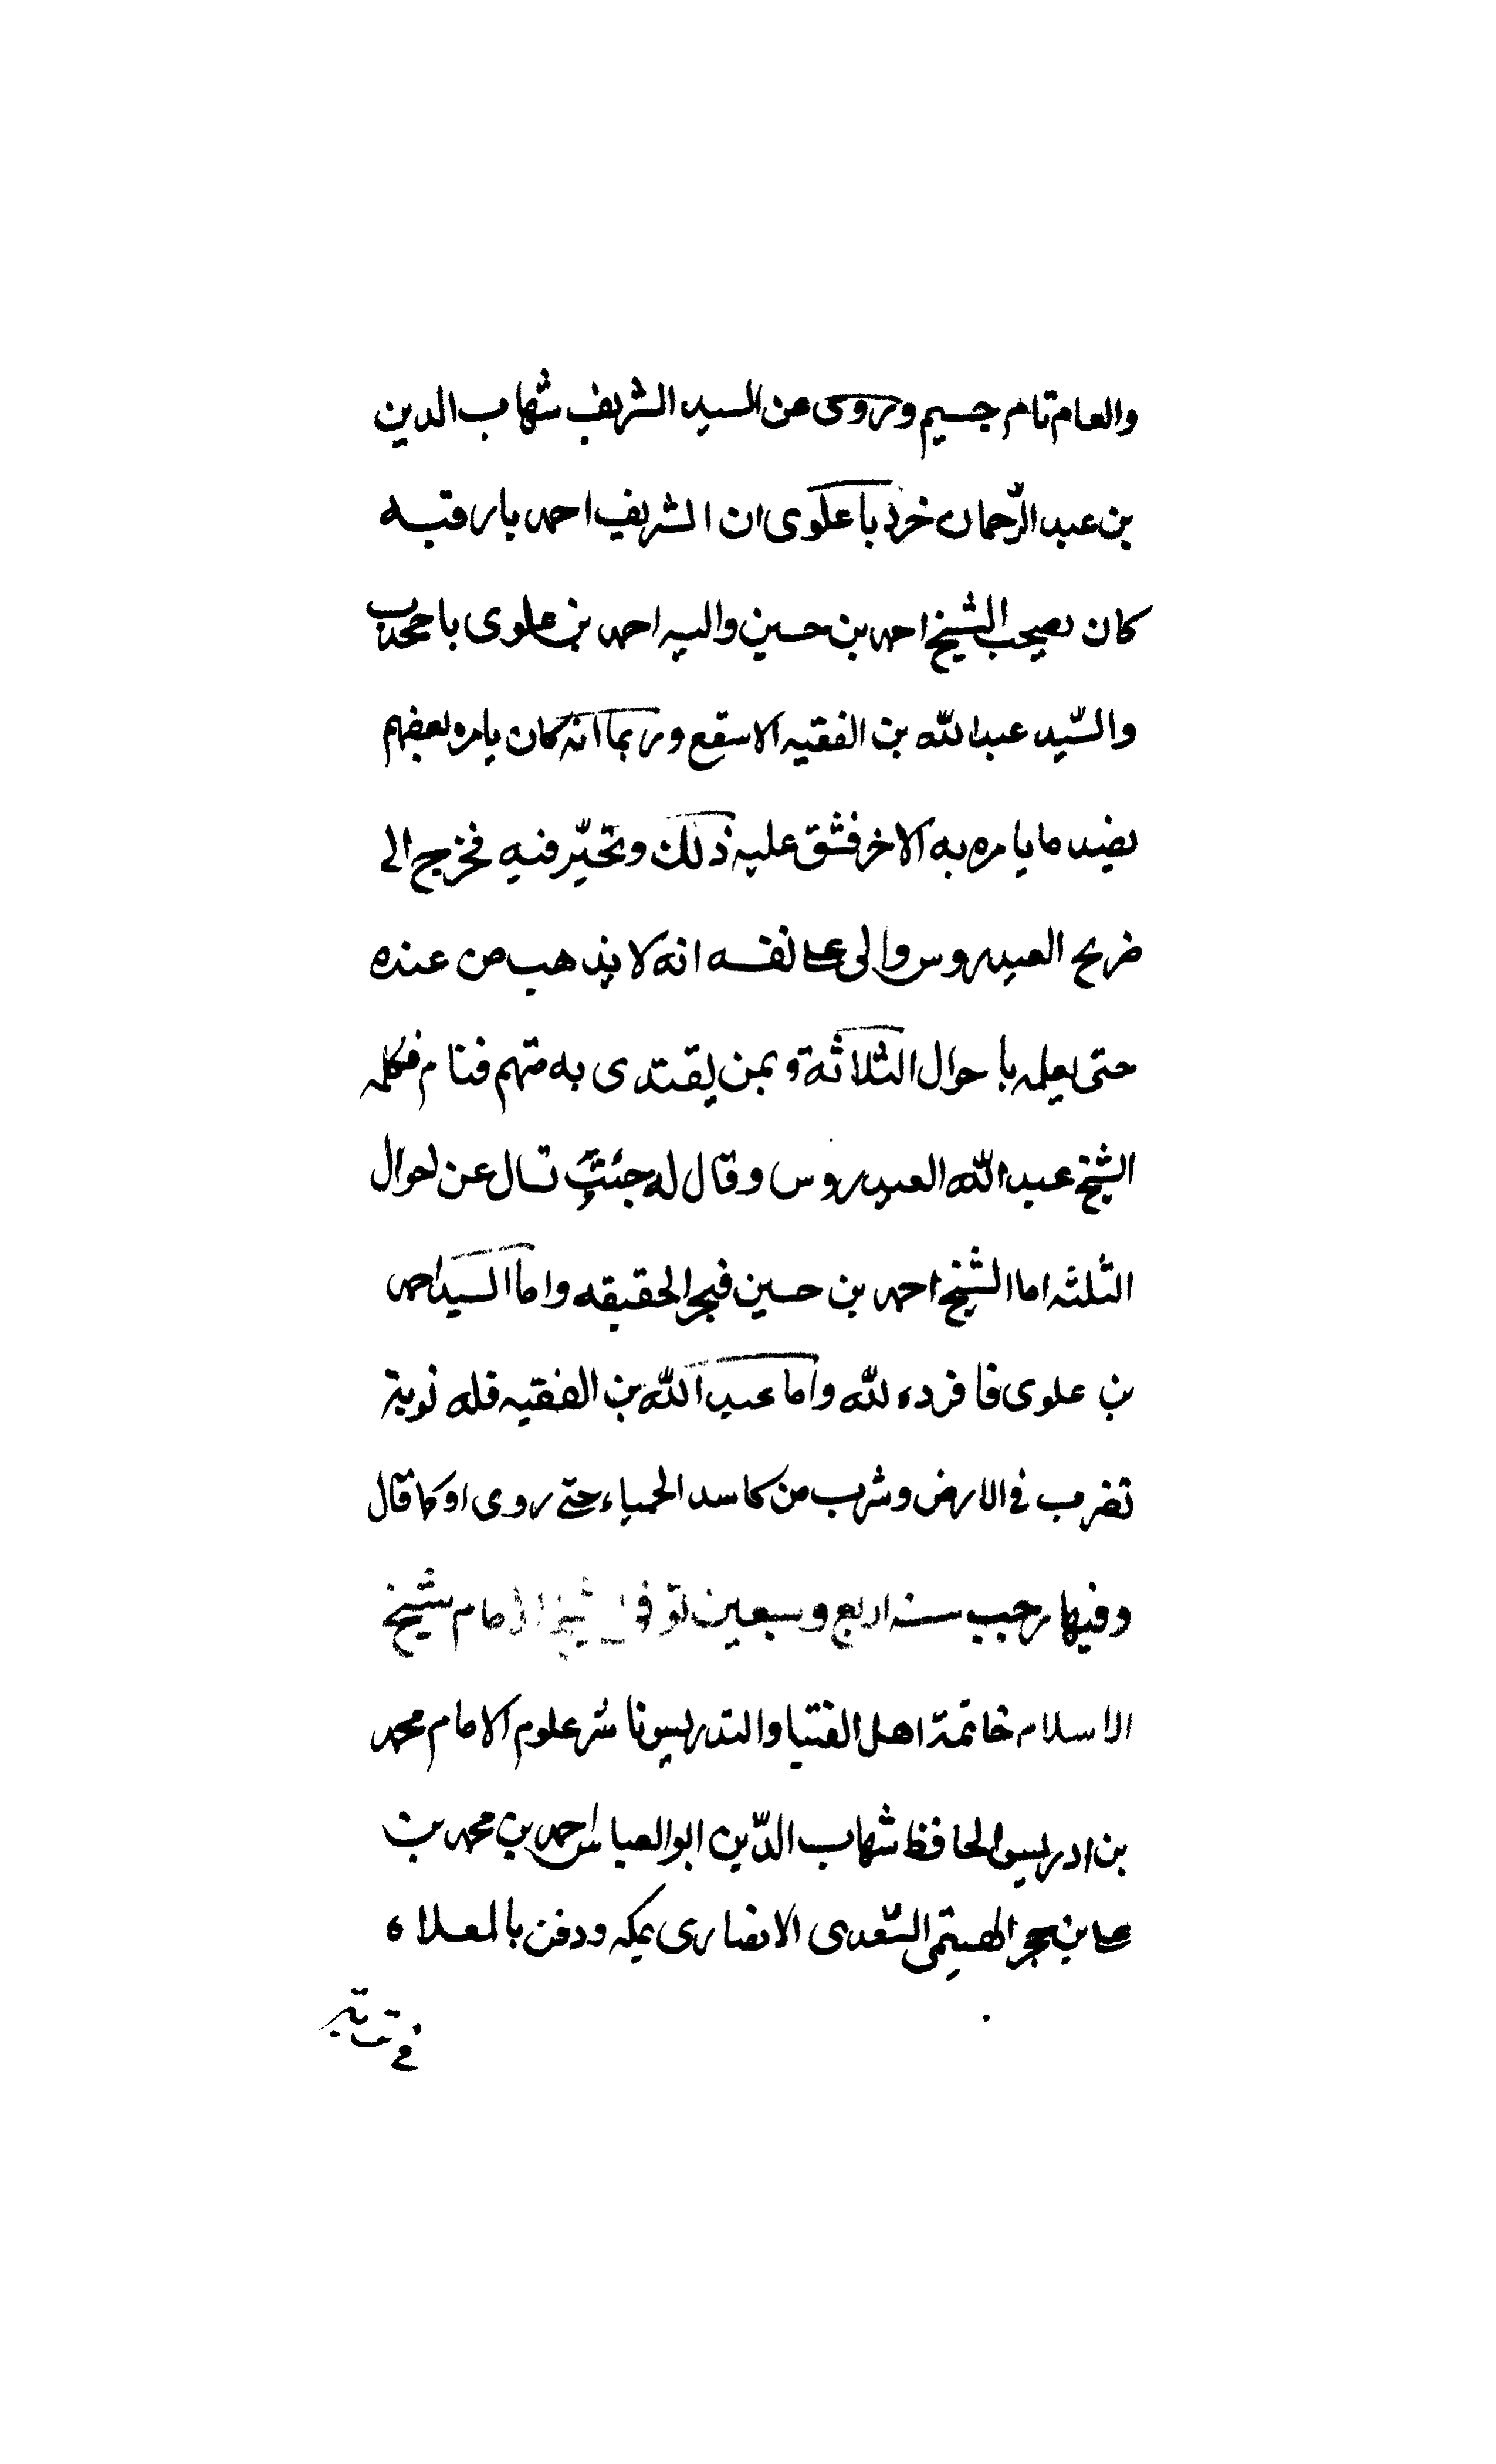 والعام تام جسيم وروى عن السيد الشريف شهاب الدين
بن عبد الرّحمان خرد با علوى ان الشريف احمد بارقبه
كان يصحب الشيخ احمد بن حسين والسيد احمد بن علوى باجحدب
والسّيد عبد الله بن الفقيه الاسقع وربما انه كان يامره بعضهم
بضد ما يامره به الاخر فشق عليه ذلك وتحيّر فيه فخرج الى
ضريح العيدروس والى على نفسه انه لا يذهب من عنده
حتى يعلمه باحوال الثلاثة وبمن يقتدى به منهم فنام فكلمه
الشيخ عبد الله العيدروس وقال له جئت تسال عن احوال
الثلثه اما الشيخ احمد بن حسين فبحر الحقيقه واما السيد احمد
بن علوى فافرده لله واما عبد الله بن الفقيه فله نوبة
تضرب فى الارض وشرب من كاسد الحمياء حتى روى او كما قال
وفيها رجب سنه اربع وسبعين توفى الشيخ الامام شيخ
الاسلام خاتمة اهل الفتيا والتدريس ناشر علوم الامام محمد
بن ادريس الحافظ شهاب الدّين ابو العباس احمد بن محمد بن
على بن حجر الهيتمى السّعدى الانصارى بمكه ودفن بالمعلاه
فى تربة